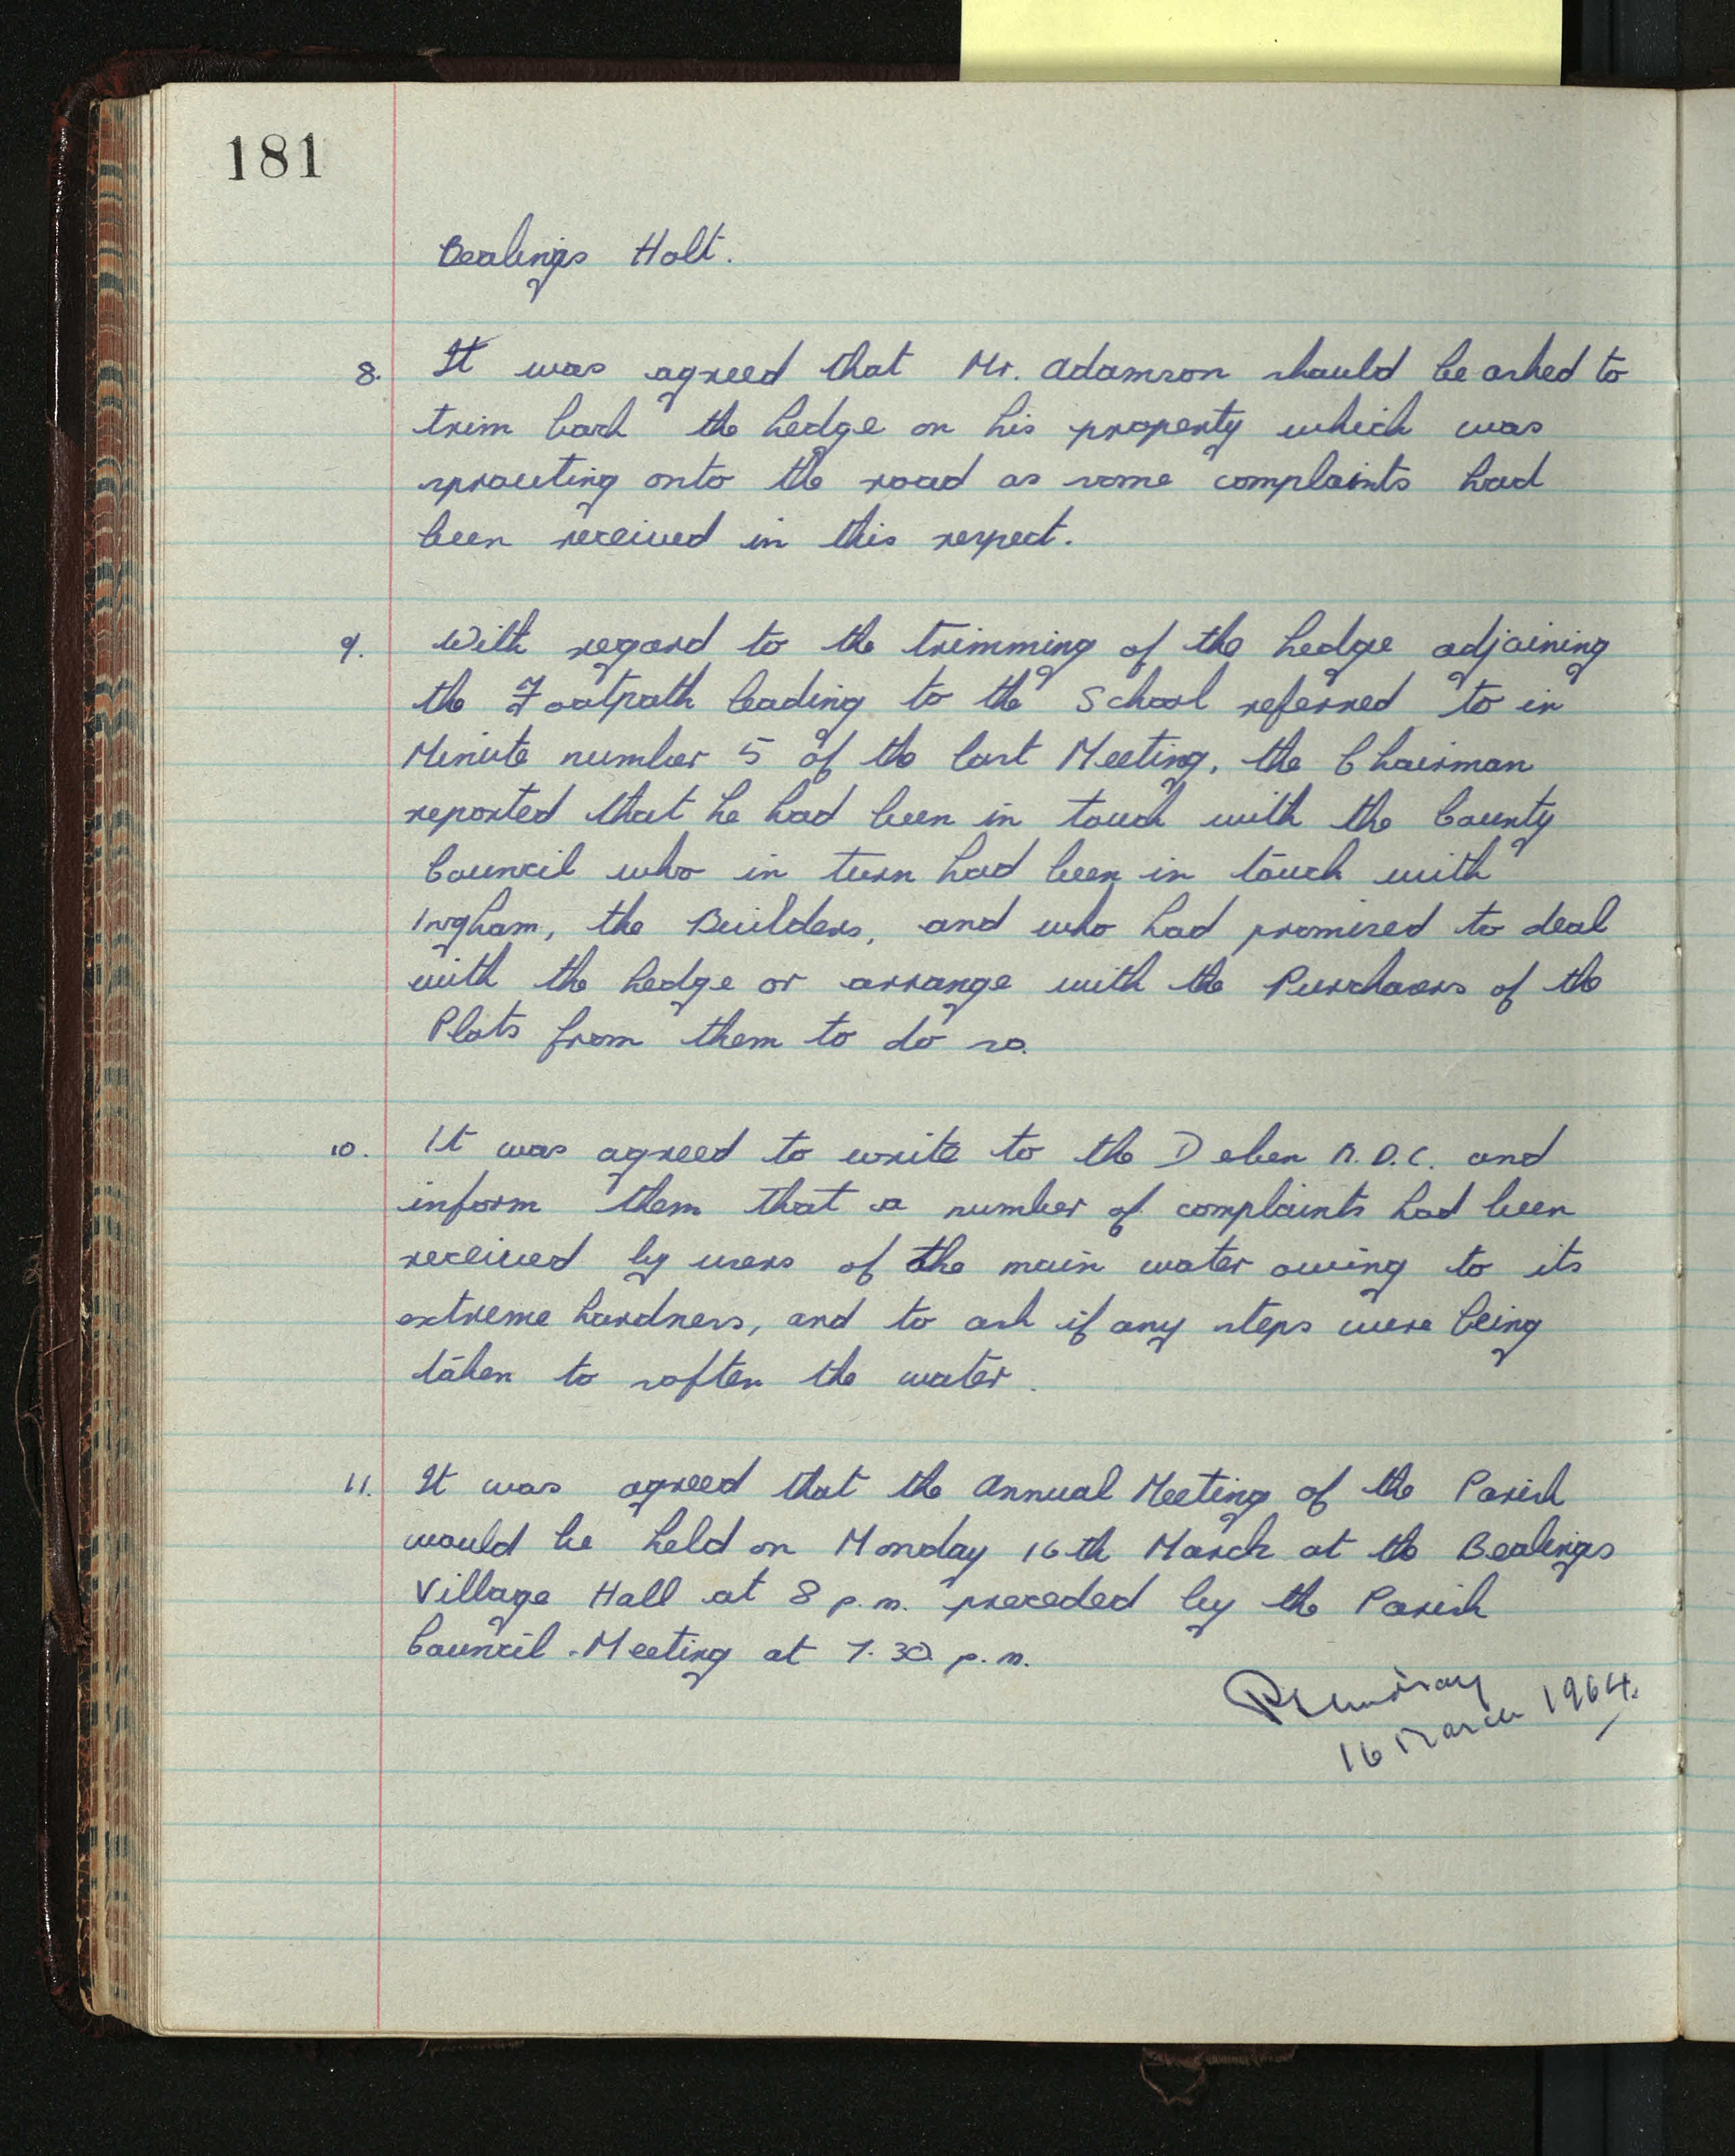 181
Bealings Holt.
8. It was agreed that Mr. Adamson should be asked to
trim back the hedge on his property which was
sprouting onto the road as some complaints had
been received in this respect.
9. With regard to the trimming of the hedge adjoining
the Footpath leading to the School referred to in
Minute number 5 of the last Meeting, the Chairman
reported that he had been in touch with the County
Council who in turn had been in touch with
Ingham, the Builders, and who had promised to deal
with the hedge or arrange with the Purchasers of the
Plots from them to do so.
10. It was agreed to write to the Deben R.D.C. and
inform them that a number of complaints had been
received by users of the main water owing to its
extreme hardness, and to ask if any steps were being
taken to soften the water.
11. It was agreed that the Annual Meeting of the Parish
would be held on Monday 16th March at the Bealings
Village Hall at 8 p.m. preceded by the Parish
Council Meeting at 7.30 p.m.
16 March 1964.